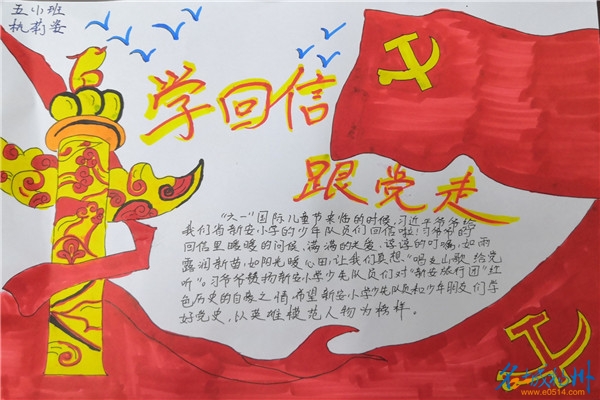 五小班
学回信
跟党走
"六一"国际儿童节来临的时候,习近平爷爷给
我们省新安小学的少年队员们回信啦!习爷爷的
回信里暖暖的问候,满满的关爱,谆谆的叮嘱,如雨
露润新苗,如阳光暖心田,让我们真想"唱支山歌给党
听"。习爷爷赞扬新安小学少先队员们对"新安旅行团"红
色历史的自豪之情,希望新安小学少先队员和少年朋友们学
好党史,以英雄模范人物为榜样。
www.e0514.com